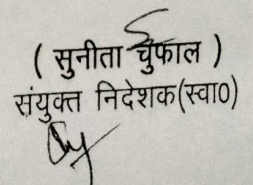 ( सुनीता चुफाल )
संयुक्त निदेशक(स्वा0)